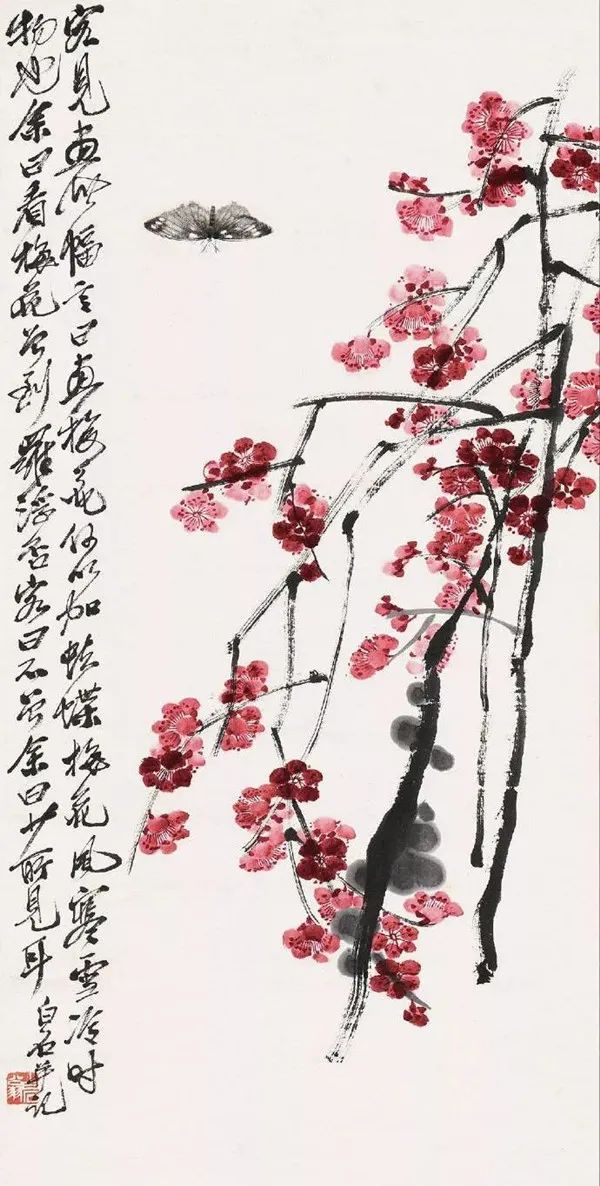 客見画此幅言曰画梅花何以加蛺蝶梅花風寒雪冷時
物也余曰看梅花曾到羅浮否客曰不曾余曰少所見耳
白石并記